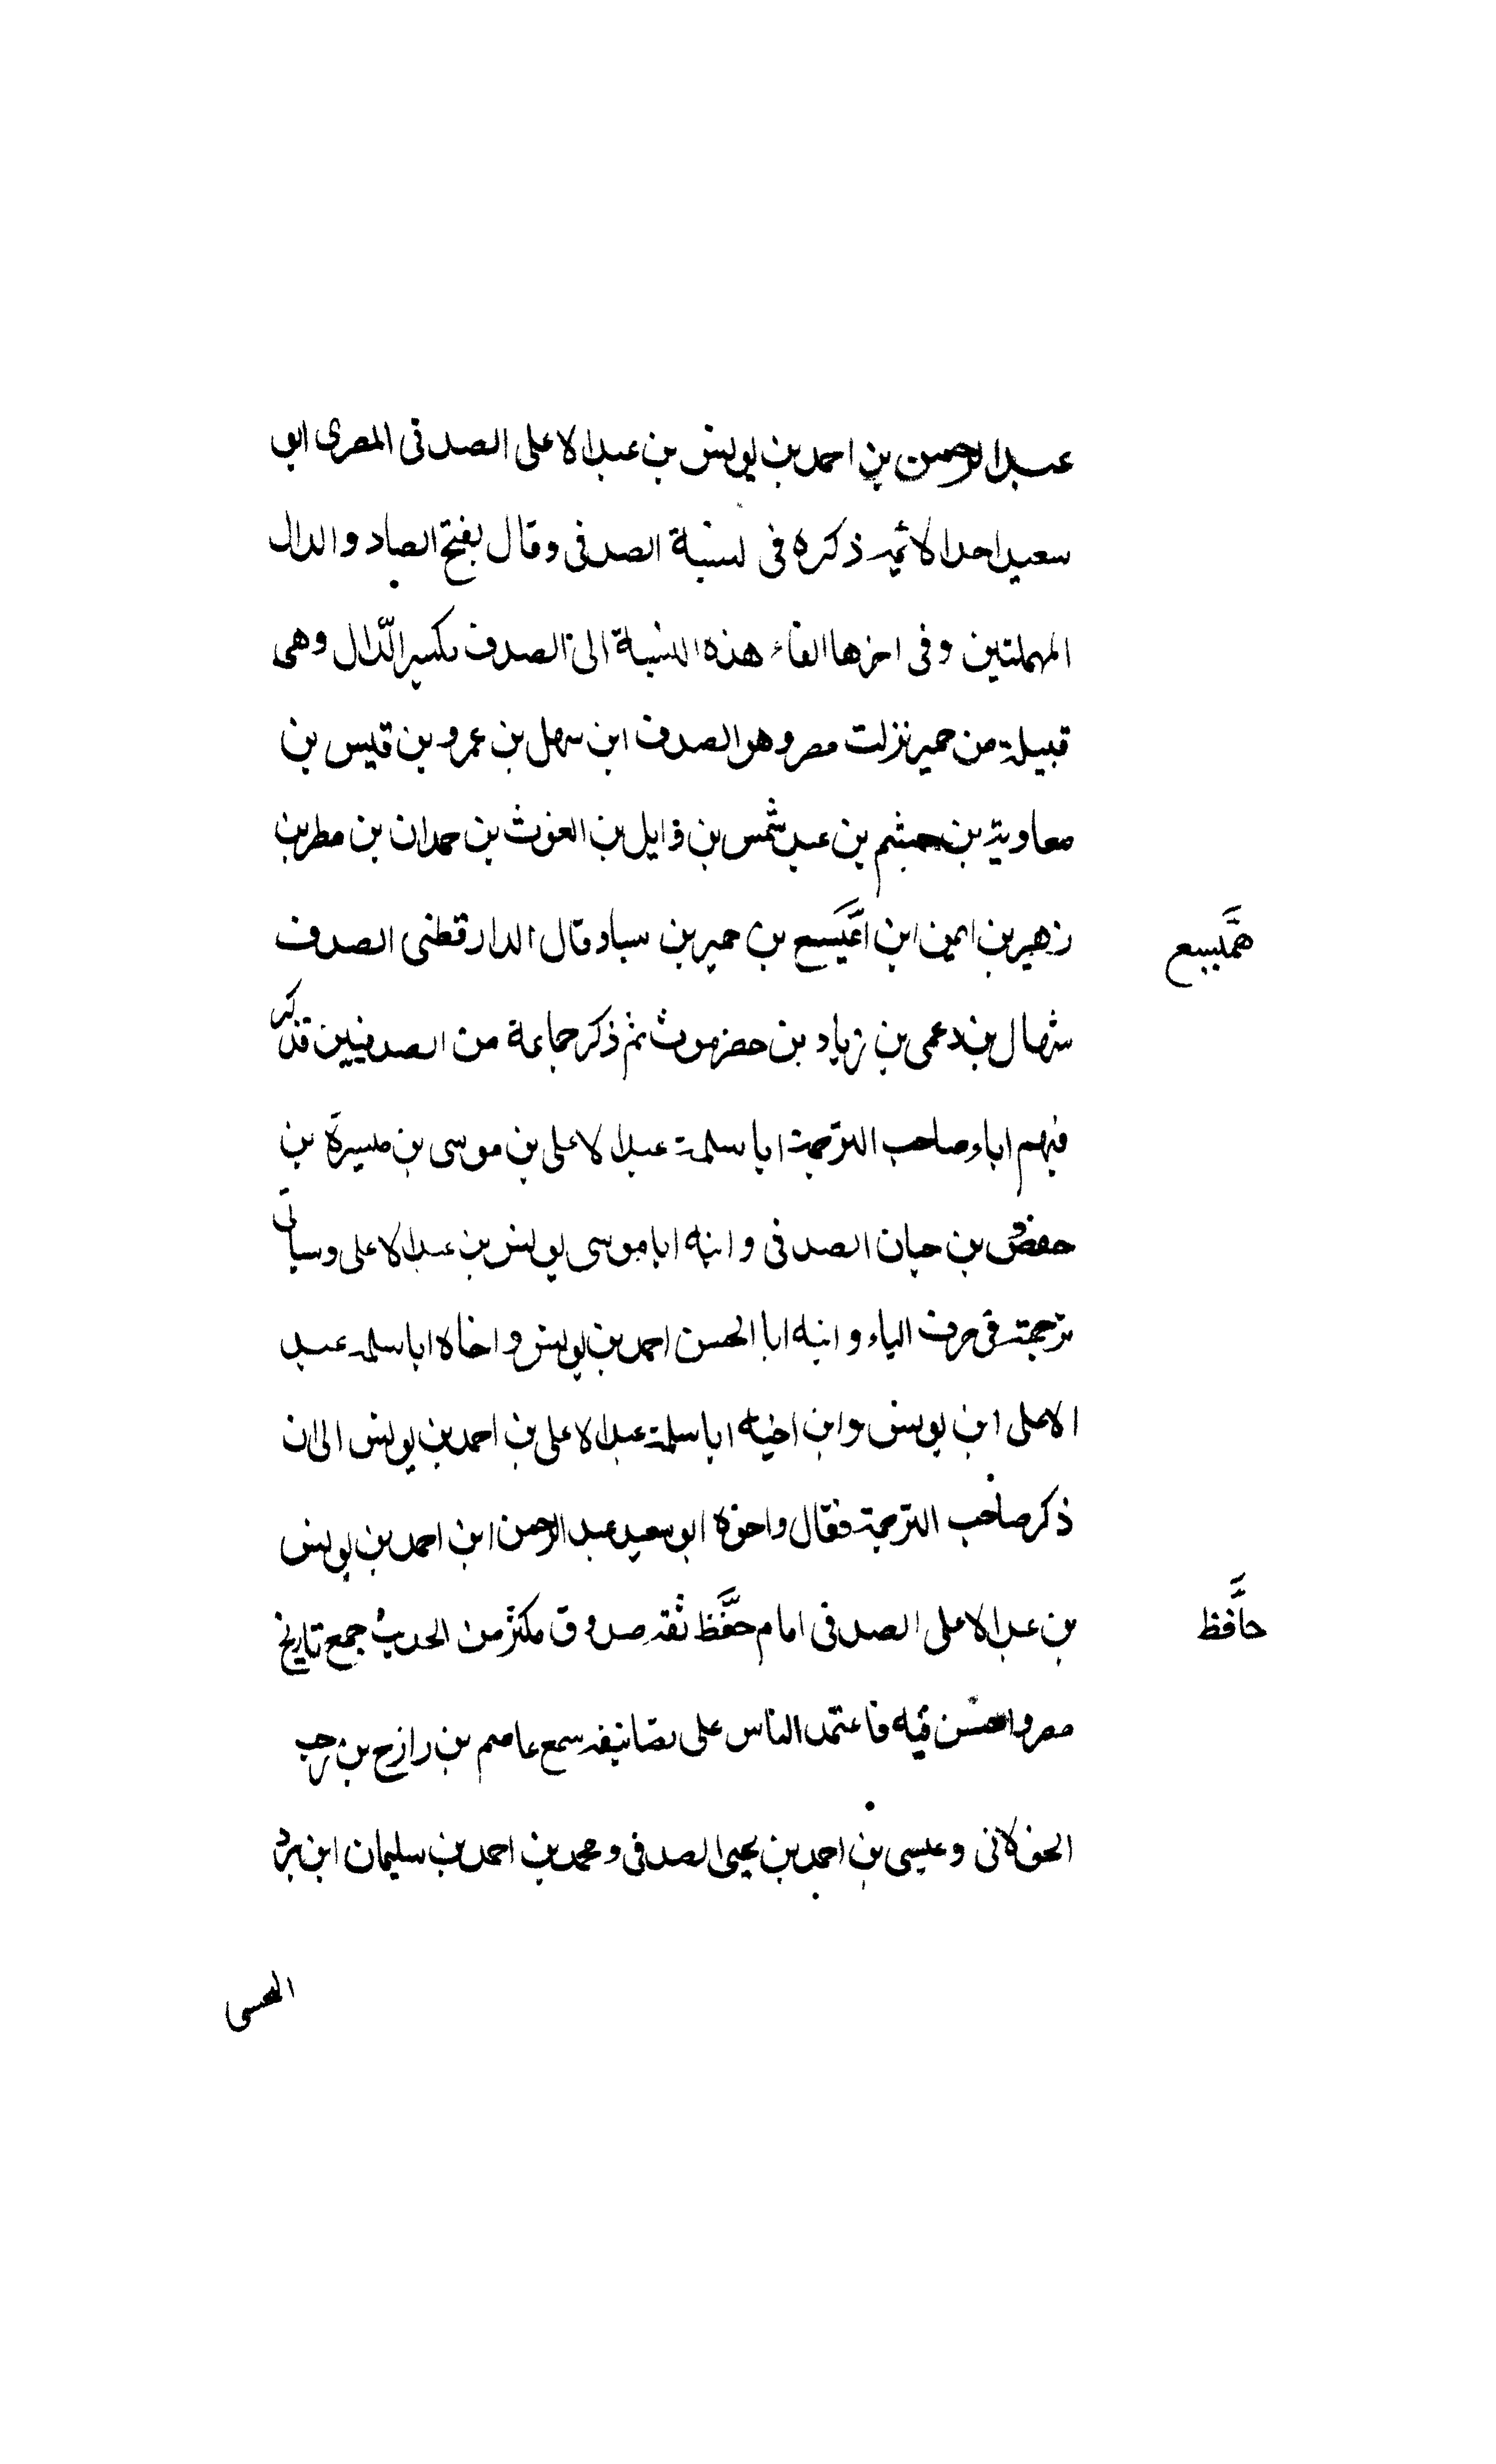 عبد الرحمن بن احمد بن يونس بن عبد الاعلى الصدفى المصرى ابو
سعيد احد الائمة ذكره فى نسبة الصدفى وقال بفتح الصاد والدال
المهملتين وفى اخرها الفاء هذه النسبة الى الصدف بكسر الدّال وهى
قبيلة من حمير نزلت مصر وهو الصدف ابن سهل بن عمرو بن قيس بن
معاوية بن جشم بن عبد شمس بن وايل بن الغوث بن حمدان بن مطر بن
زهير بن ايمن ابن بن حمير بن سباء وقال الدارقطنى الصدف
هميسع
شهال بن دعمى بن زياد بن حضرموت ثم ذكر جماعة من الصدفيين قد ذكر
فيهم اباء صاحب الترجمة ابا سلمة عبد الاعلى بن موسى بن ميسرة بن
حفص بن حيان الصدفى وابنه ابا موسى يونس بن عبد الاعلى وسياتى
ترجمته فى حرف الياء وابنه ابا الحسن احمد بن يونس واخاه ابا سلمة عبد
الاعلى ابن يونس وابن اخيه ابا سلمة عبد الاعلى بن احمد بن يونس الى ان
ذكر صاحب الترجمة فقال واخوه ابو سعيد عبد الرحمن ابن احمد بن يونس
بن عبد الاعلى الصدفى امام حفظ ثقة صدوق مكثر من الحديث جمع تاريخ
حافظ
مصر واحسن فيه فاعتمد الناس على تصانيفه سمع عاصم بن رازح بن رجب
الخولانى وعيسى بن احمد بن يحيى الصدفى ومحمد بن احمد بن سليمان ابن برد